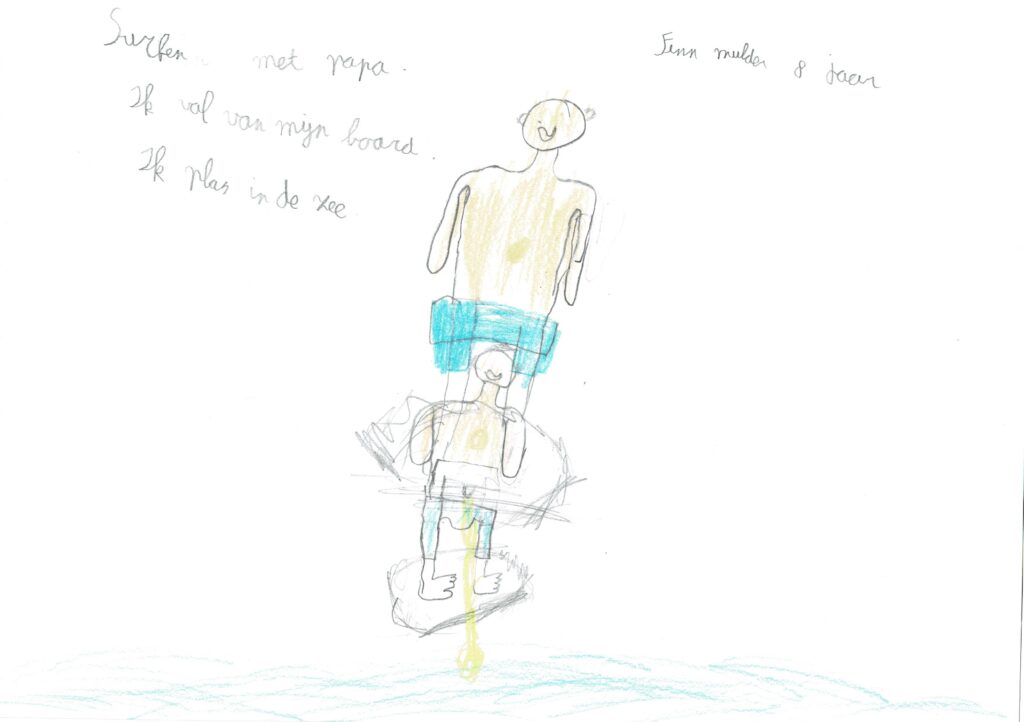 Surfen met papa.
Fenn mulder 8 jaar
Ik val van mijn board.
Ik plas in de zee